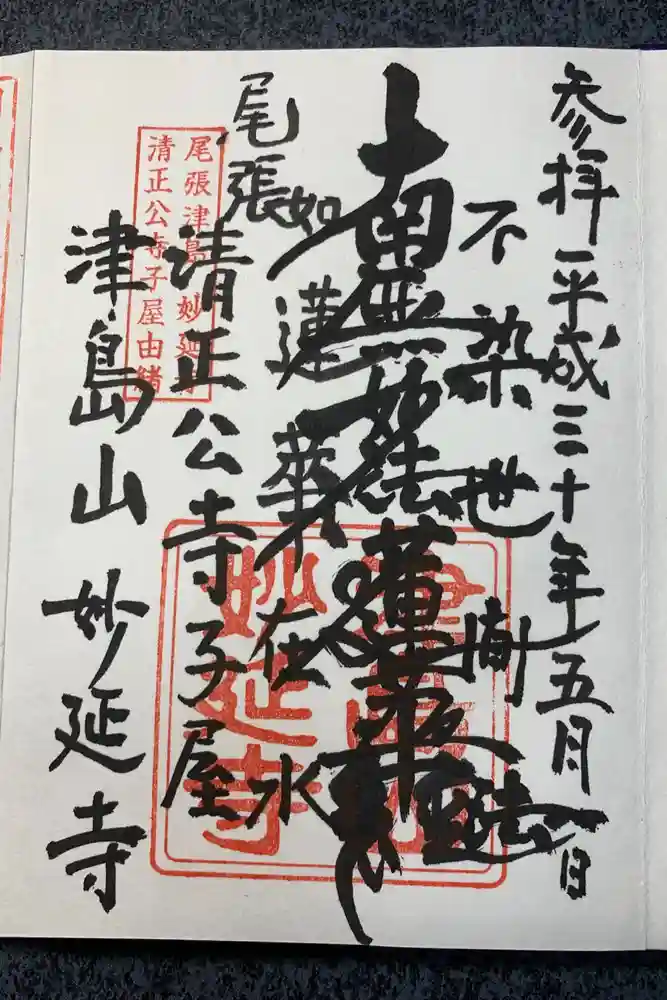 参拝 平成三十年五月一日
不染世間法
南無妙法蓮華経
如蓮華在水
尾張
清正公寺子屋
津島山 妙延寺
尾張津島 妙延寺
清正公寺子屋由緒
津島山
妙延寺